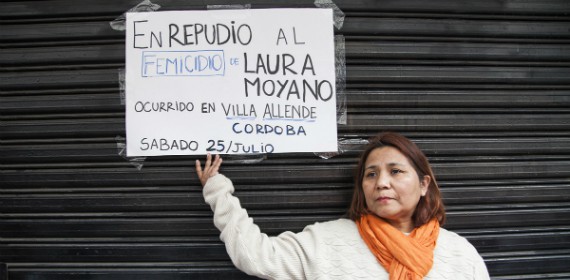 EN REPUDIO AL
FEMICIDIO DE LAURA
MOYANO
OCURRIDO EN VILLA ALLENDE
CORDOBA
SABADO 25/JULIO